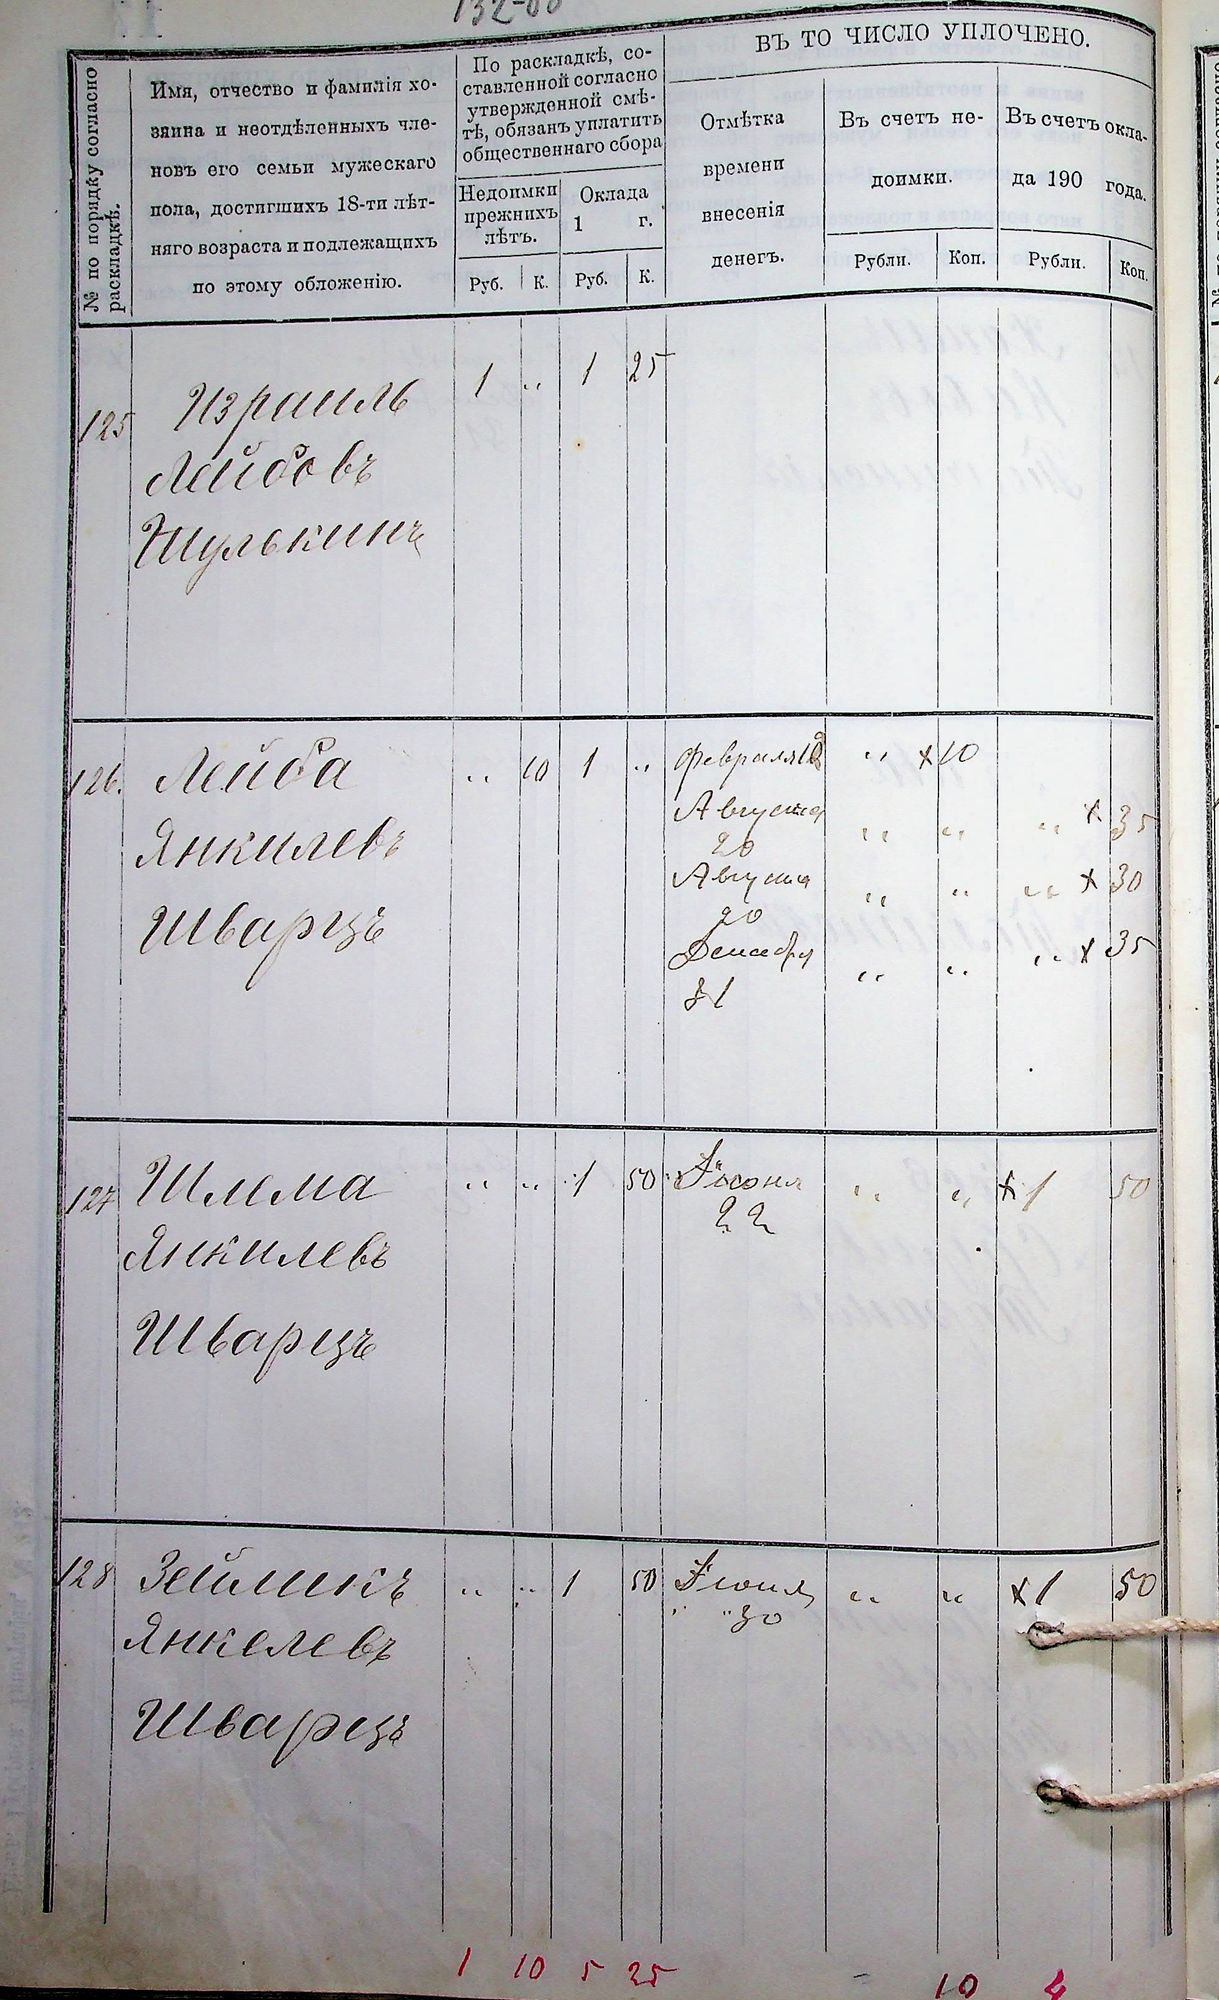 132-00
№ по порядку согласно раскладкѣ.
Имя, отчество и фамилія хо-
зяина и неотдѣленныхъ чле-
новъ его семьи мужескаго
пола, достигшихъ 18-ти лѣт-
няго возраста и подлежащихъ
по этому обложенію.
По раскладкѣ, со-
ставленной согласно
утвержденной смѣ-
тѣ, обязанъ уплатить
общественнаго сбора
Недоимки прежнихъ лѣтъ.
Оклада 1 г.
Руб. К. Руб. К.
ВЪ ТО ЧИСЛО УПЛОЧЕНО.
Отмѣтка
времени
внесенія
денегъ.
Въ счетъ не-
доимки.
Рубли. Коп.
Въ счетъ окла-
да 190 года.
Рубли. Коп.
125 Израиль 1 " 1 25
Лейбовъ
Шулькинъ
126. Лейба " 10 1 " Февраля " х10
Янкилевъ Августа 20 " " " х 35
Шварцъ Августа 20 " " " х 30
Декабря 31 " " " х 35
127 Шлема " " 1 50 Іюня 22 " " х 1 50
Янкилевъ
Шварцъ
128 Зеймикъ " " 1 50 " " 30 " " х 1 50
Янкелевъ
Шварцъ
1 10 5 25 - 10 4